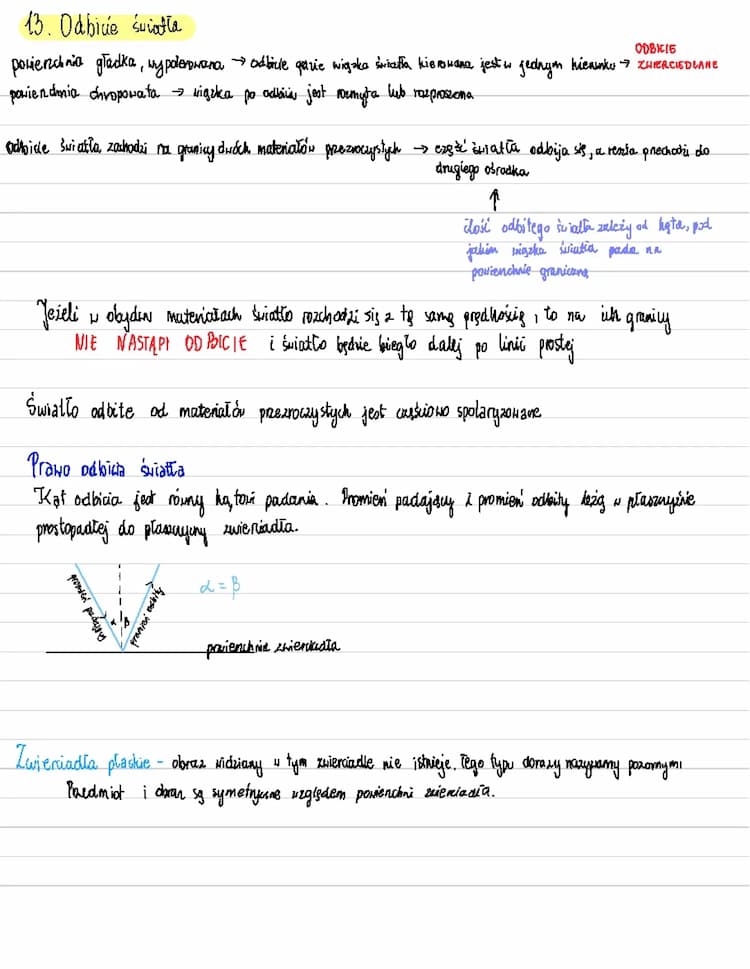 13. Odbicie światła
powierzchnia gładka, wypolerowana → odbicie gdzie wiązka światła kierowana jest w jednym kierunku → ODBICIE ZWIERCIEDLANE
powierzchnia chropowata → wiązka po odbiciu jest rozmyta lub rozproszona
odbicie światła zachodzi na granicy dwóch materiałów przezroczystych → część światła odbija się, a reszta przechodzi do
drugiego ośrodka
↑
ilość odbitego światła zależy od kąta, pod
jakim wiązka światła pada na
powierzchnie graniczną
Jeżeli w obydwu materiałach światło rozchodzi się z tą samą prędkością, to na ich granicy
NIE NASTĄPI ODBICIE i światło będzie biegło dalej po linii prostej
Światło odbite od materiałów przezroczystych jest częściowo spolaryzowane
Prawo odbicia światła
Kąt odbicia jest równy kątowi padania. Promień padający i promień odbity leżą w płaszczyźnie
prostopadłej do płaszczyzny zwierciadła.
promień padający
α
β
promień odbity
α = β
powierzchnia zwierciadła
Zwierciadła płaskie - obraz widziany w tym zwierciadle nie istnieje. Tego typu obrazy nazywamy pozornymi
Przedmiot i obraz są symetryczne względem powierzchni zwierciadła.